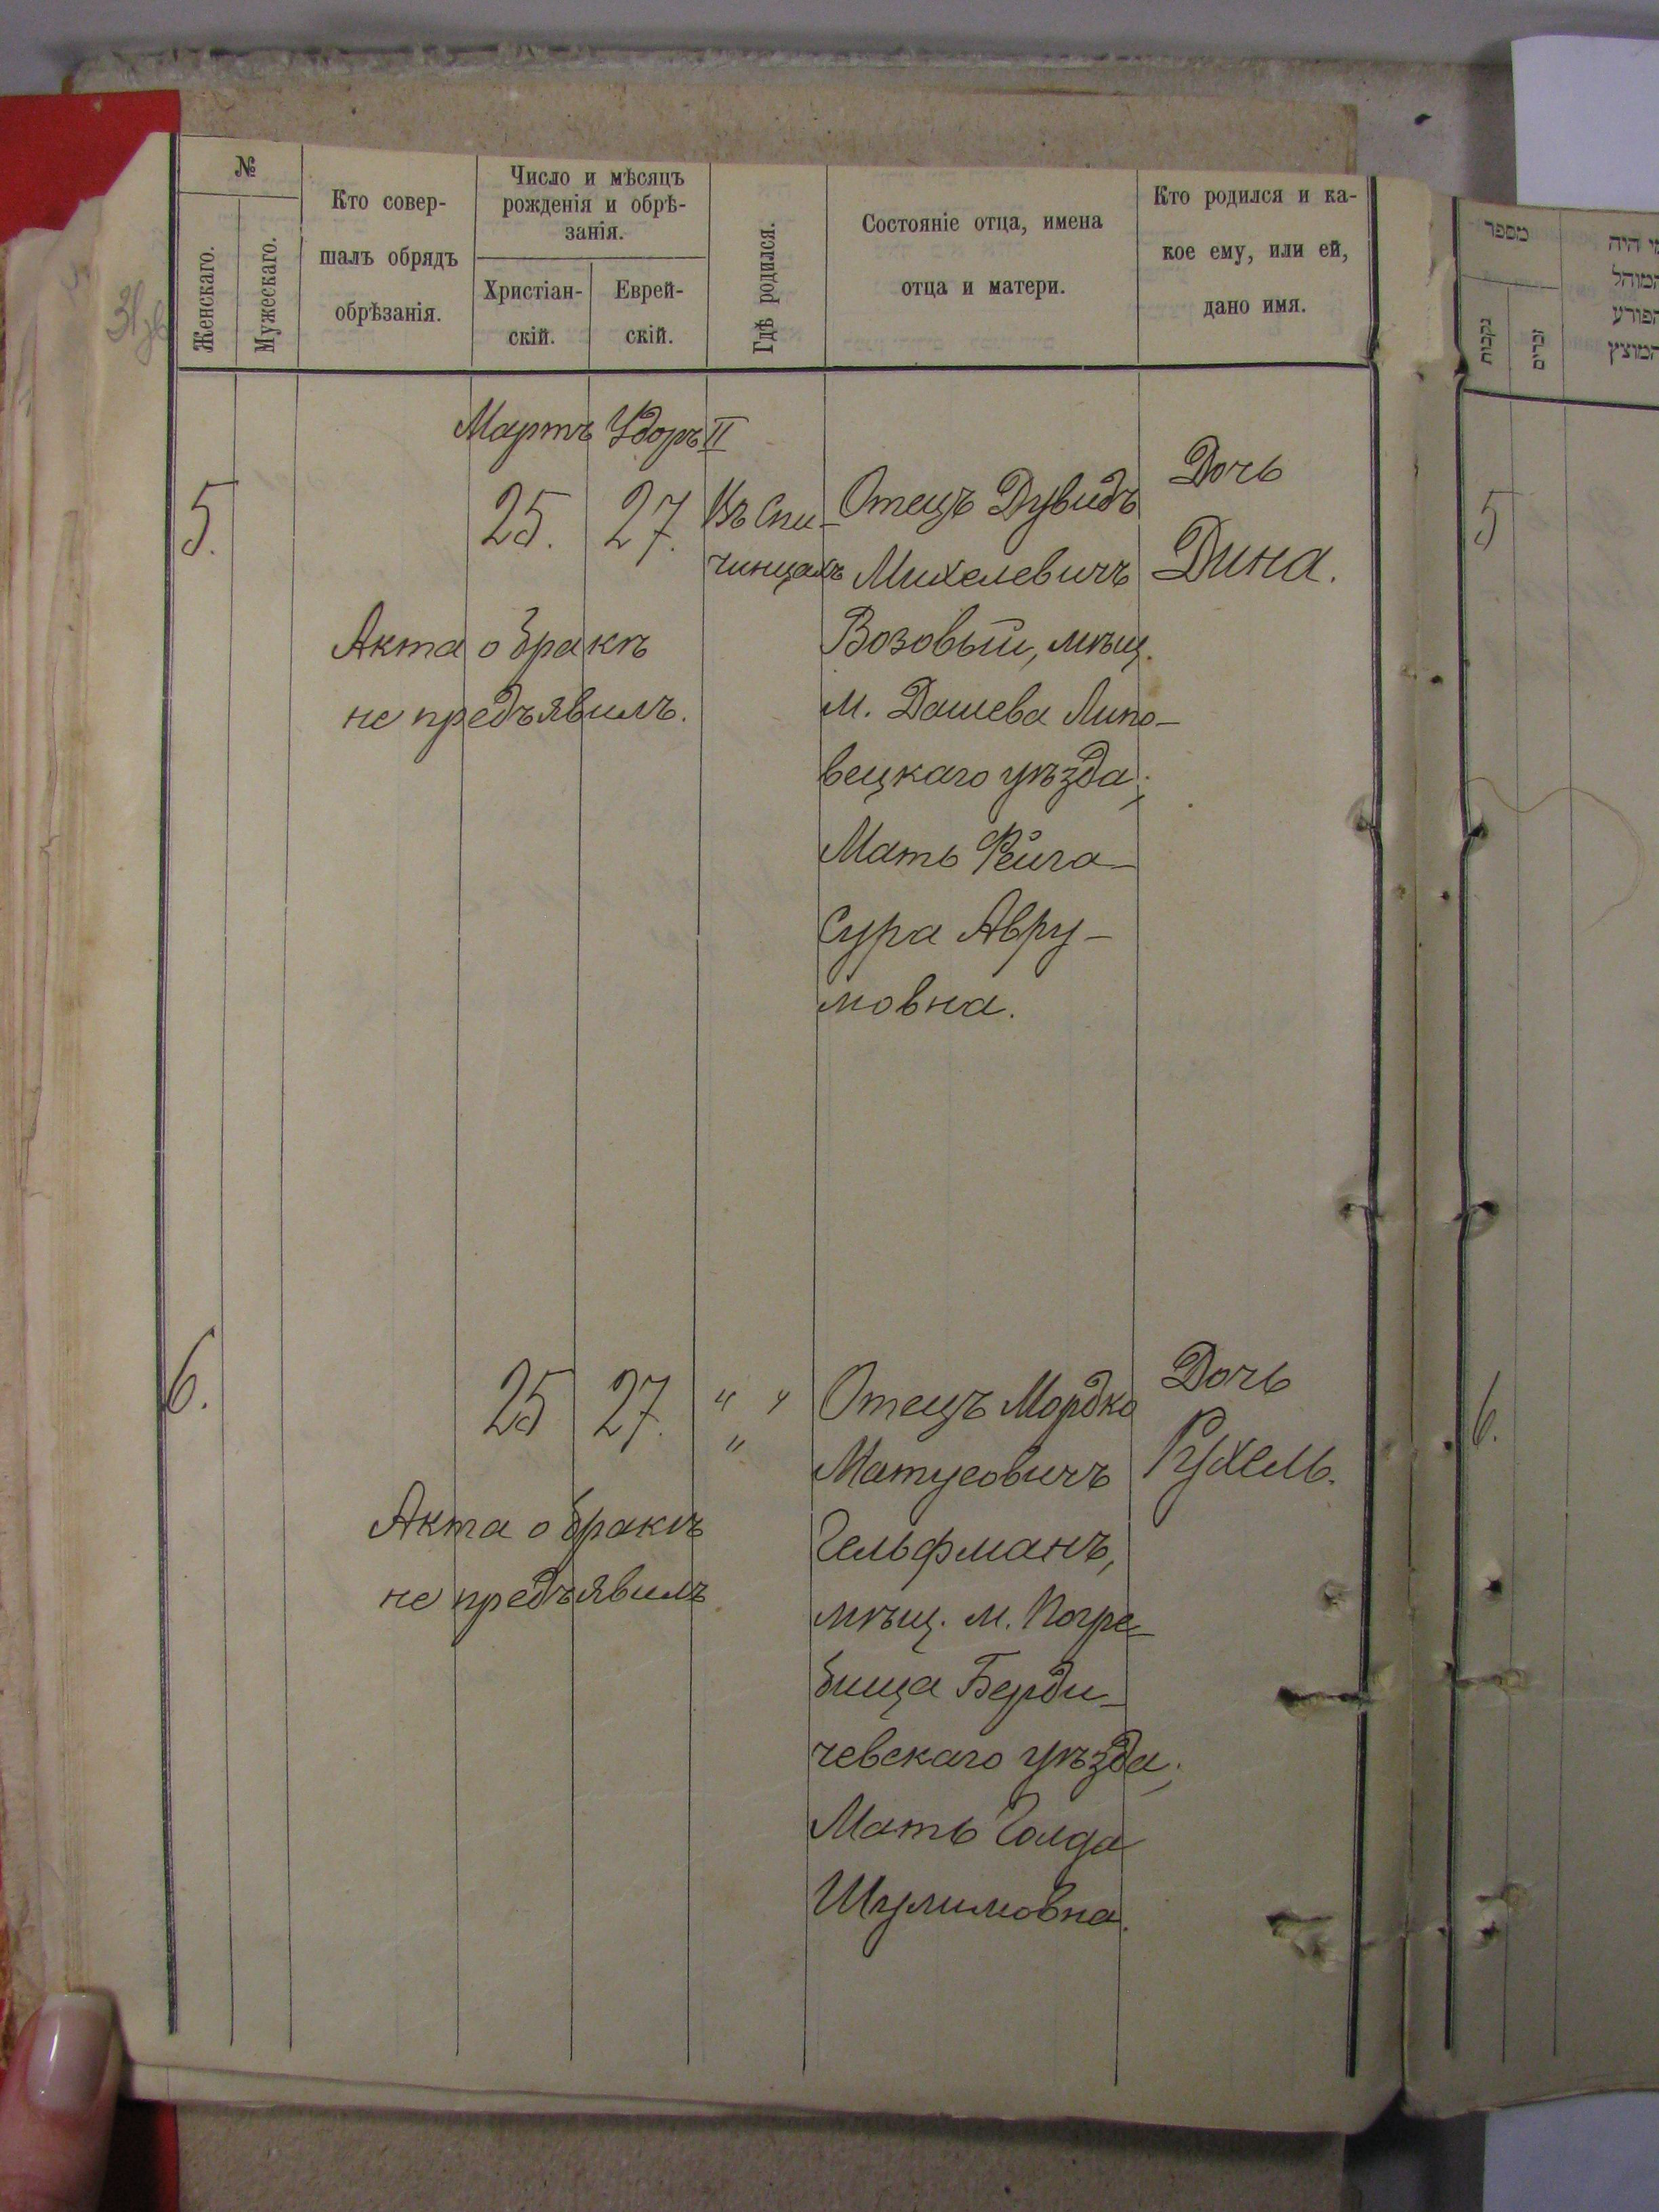 №
Женскаго.
Мужескаго.
Кто совер-
шалъ обрядъ
обрѣзанія.
Число и мѣсяцъ
рожденія и обрѣ-
занія.
Христіан-
скій.
Еврей-
скій.
Гдѣ родился.
Состояніе отца, имена
отца и матери.
Кто родился и ка-
кое ему, или ей,
дано имя.
Мартъ Удоръ II
5.
25.
27.
Въ Спи-
чинцахъ
Отецъ Дувидъ
Михелевичъ
Возовый, мѣщ.
м. Дашева Липо-
вецкаго уѣзда;
Мать Фейга-
Сура Авру-
мовна.
Дочь
Дина.
Акта о бракѣ
не предъявилъ.
6.
25
27.
" "
"
Отецъ Мордко
Матусовичъ
Гельфманъ,
мѣщ. м. Погре-
бища Берди-
чевскаго уѣзда;
Мать Голда
Шулимовна.
Дочь
Рухель.
Акта о бракѣ
не предъявилъ
מספר
נקבות
זכרים
מי היה
המוהל
הפורע
המוצץ
5
6.